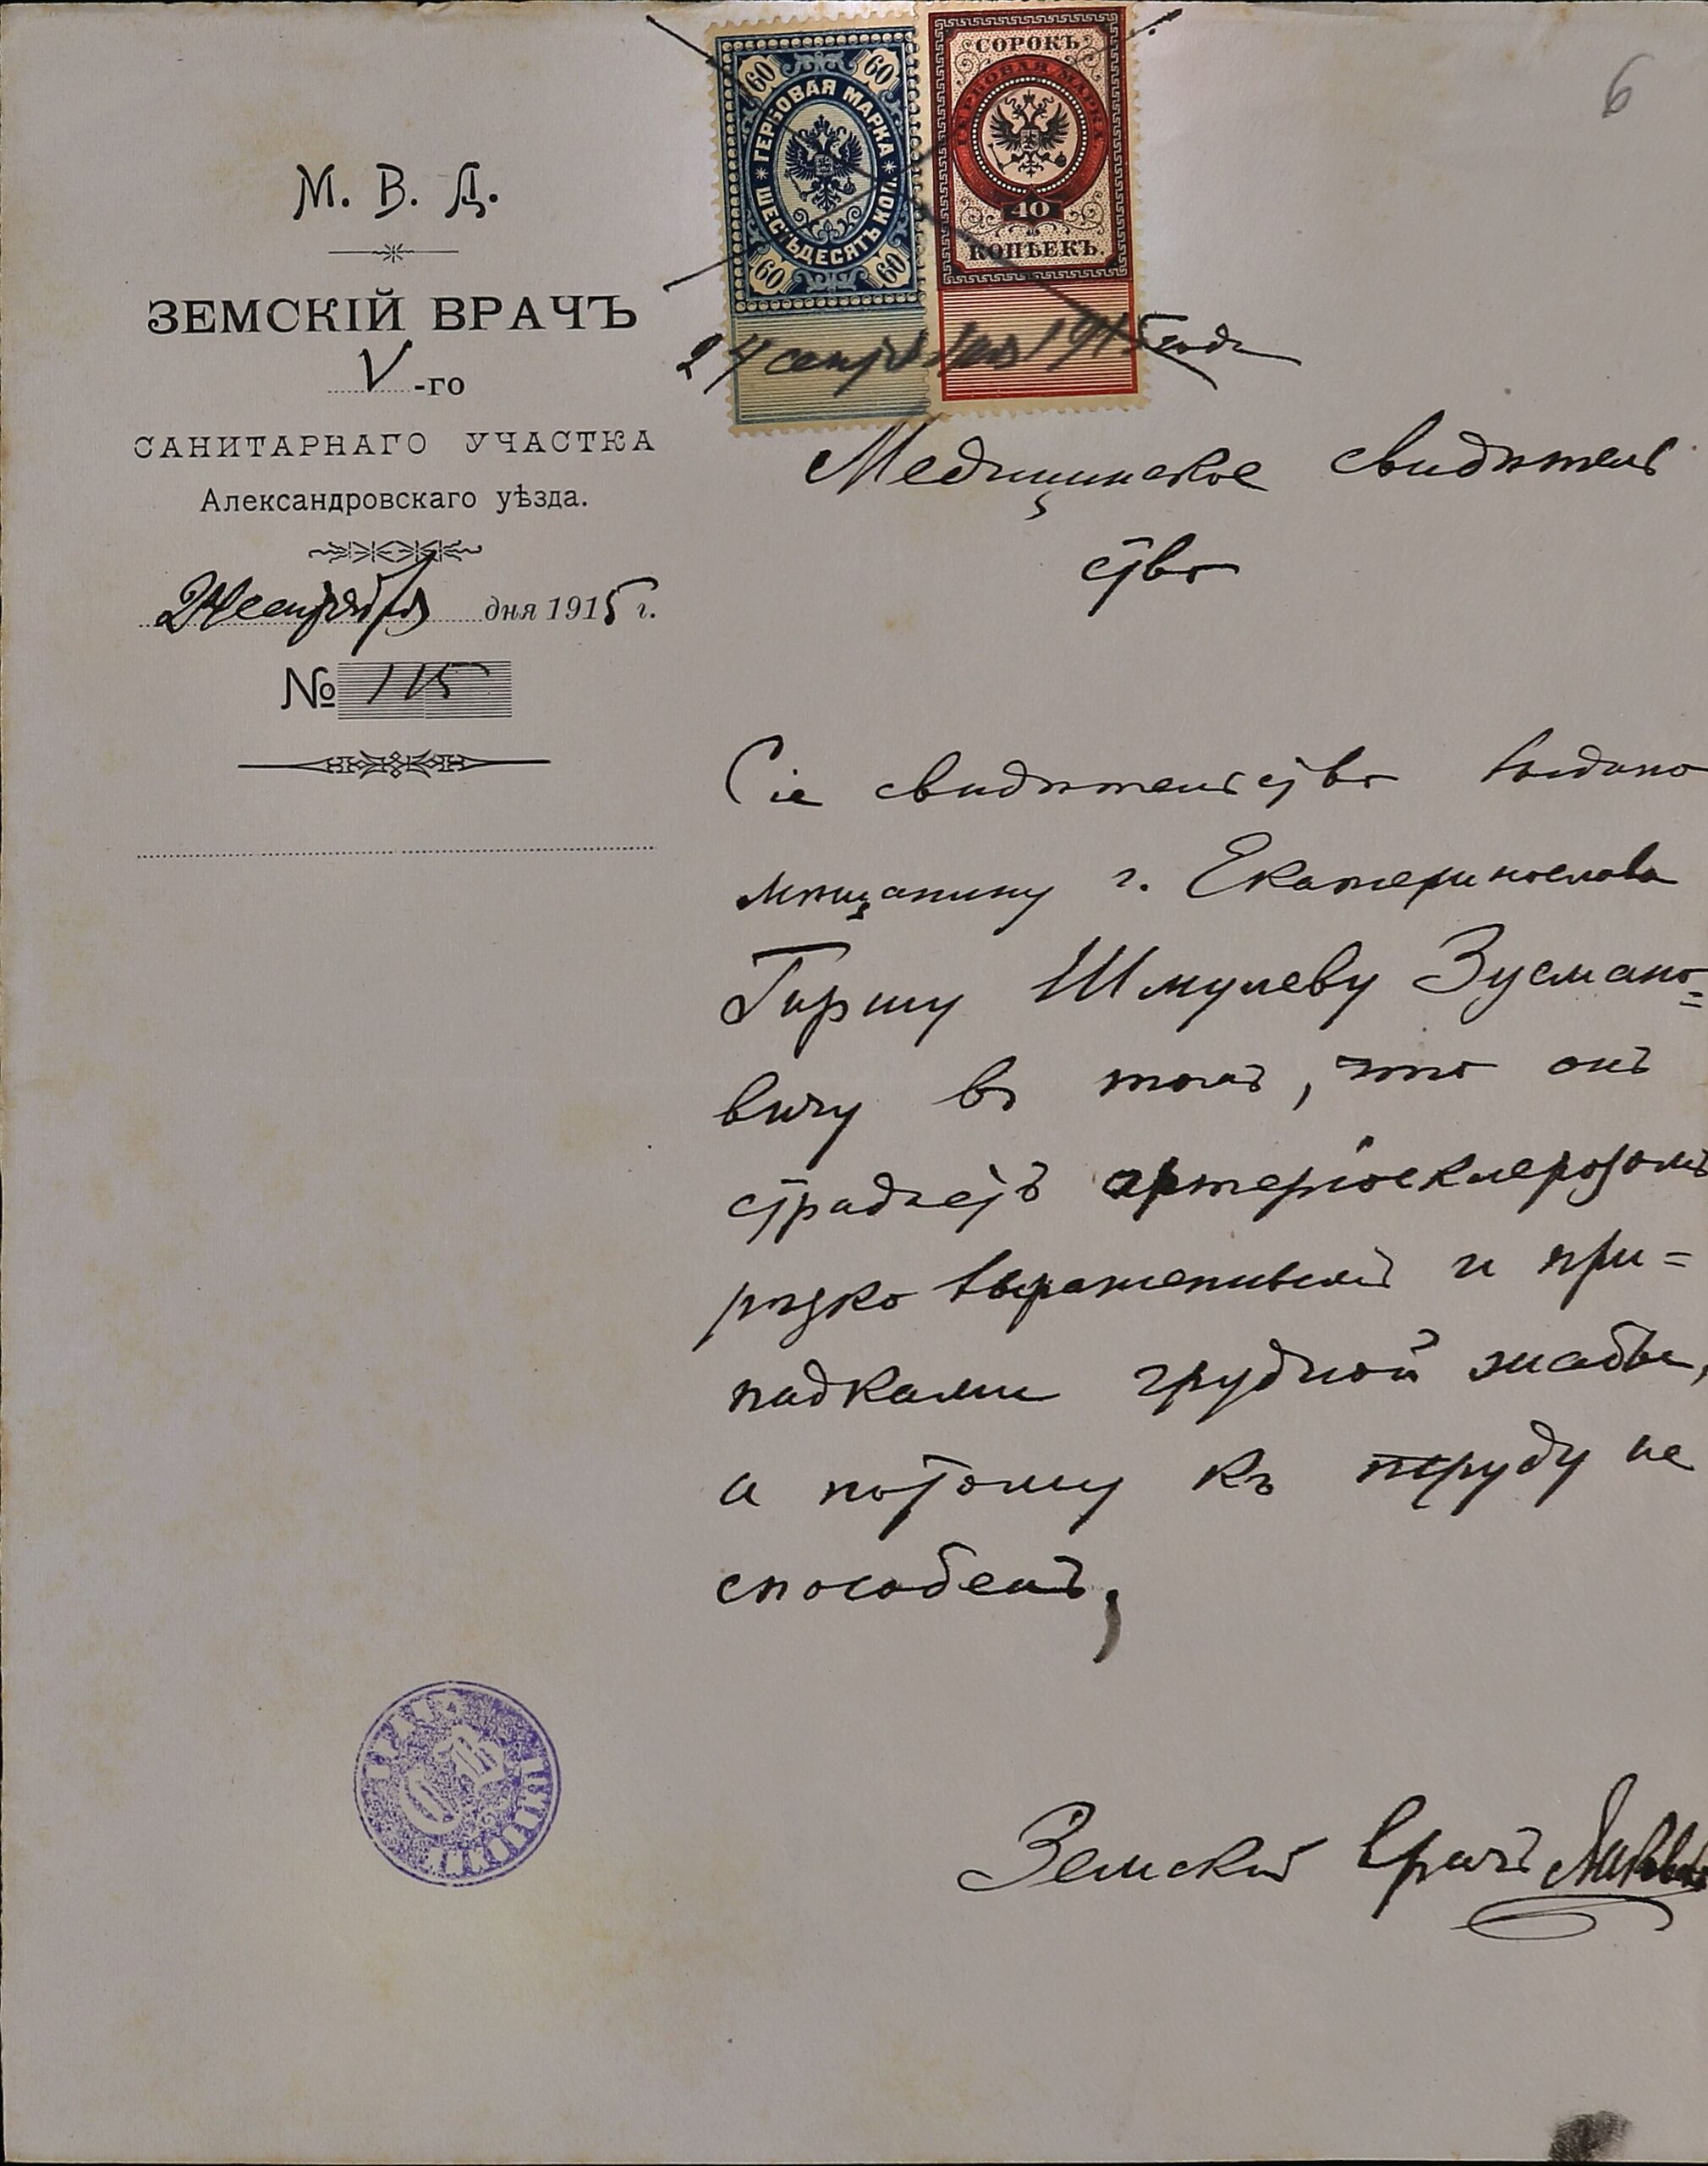 6
60 60
ГЕРБОВАЯ МАРКА
ШЕСТЬДЕСЯТЪ КОП.
60 60
СОРОКЪ
ГЕРБОВАЯ МАРКА
40
КОПѢЕКЪ.
24 сентября 1915 года
М. В. Д.
ЗЕМСКІЙ ВРАЧЪ
V -го
САНИТАРНАГО УЧАСТКА
Александровскаго уѣзда.
24 сентября дня 1915 г.
№ 115
Медицинское свидѣтель
ство
Сіе свидѣтельство выдано
мѣщанину г. Екатеринослава
Гиршу Шмулеву Зусмано=
вичу въ томъ, что онъ
страдаетъ артеріосклерозомъ
рѣзко выраженнымъ и при=
падками грудной жабы,
и потому къ труду не
способенъ,
Земскій врачъ
ВРАЧЪ